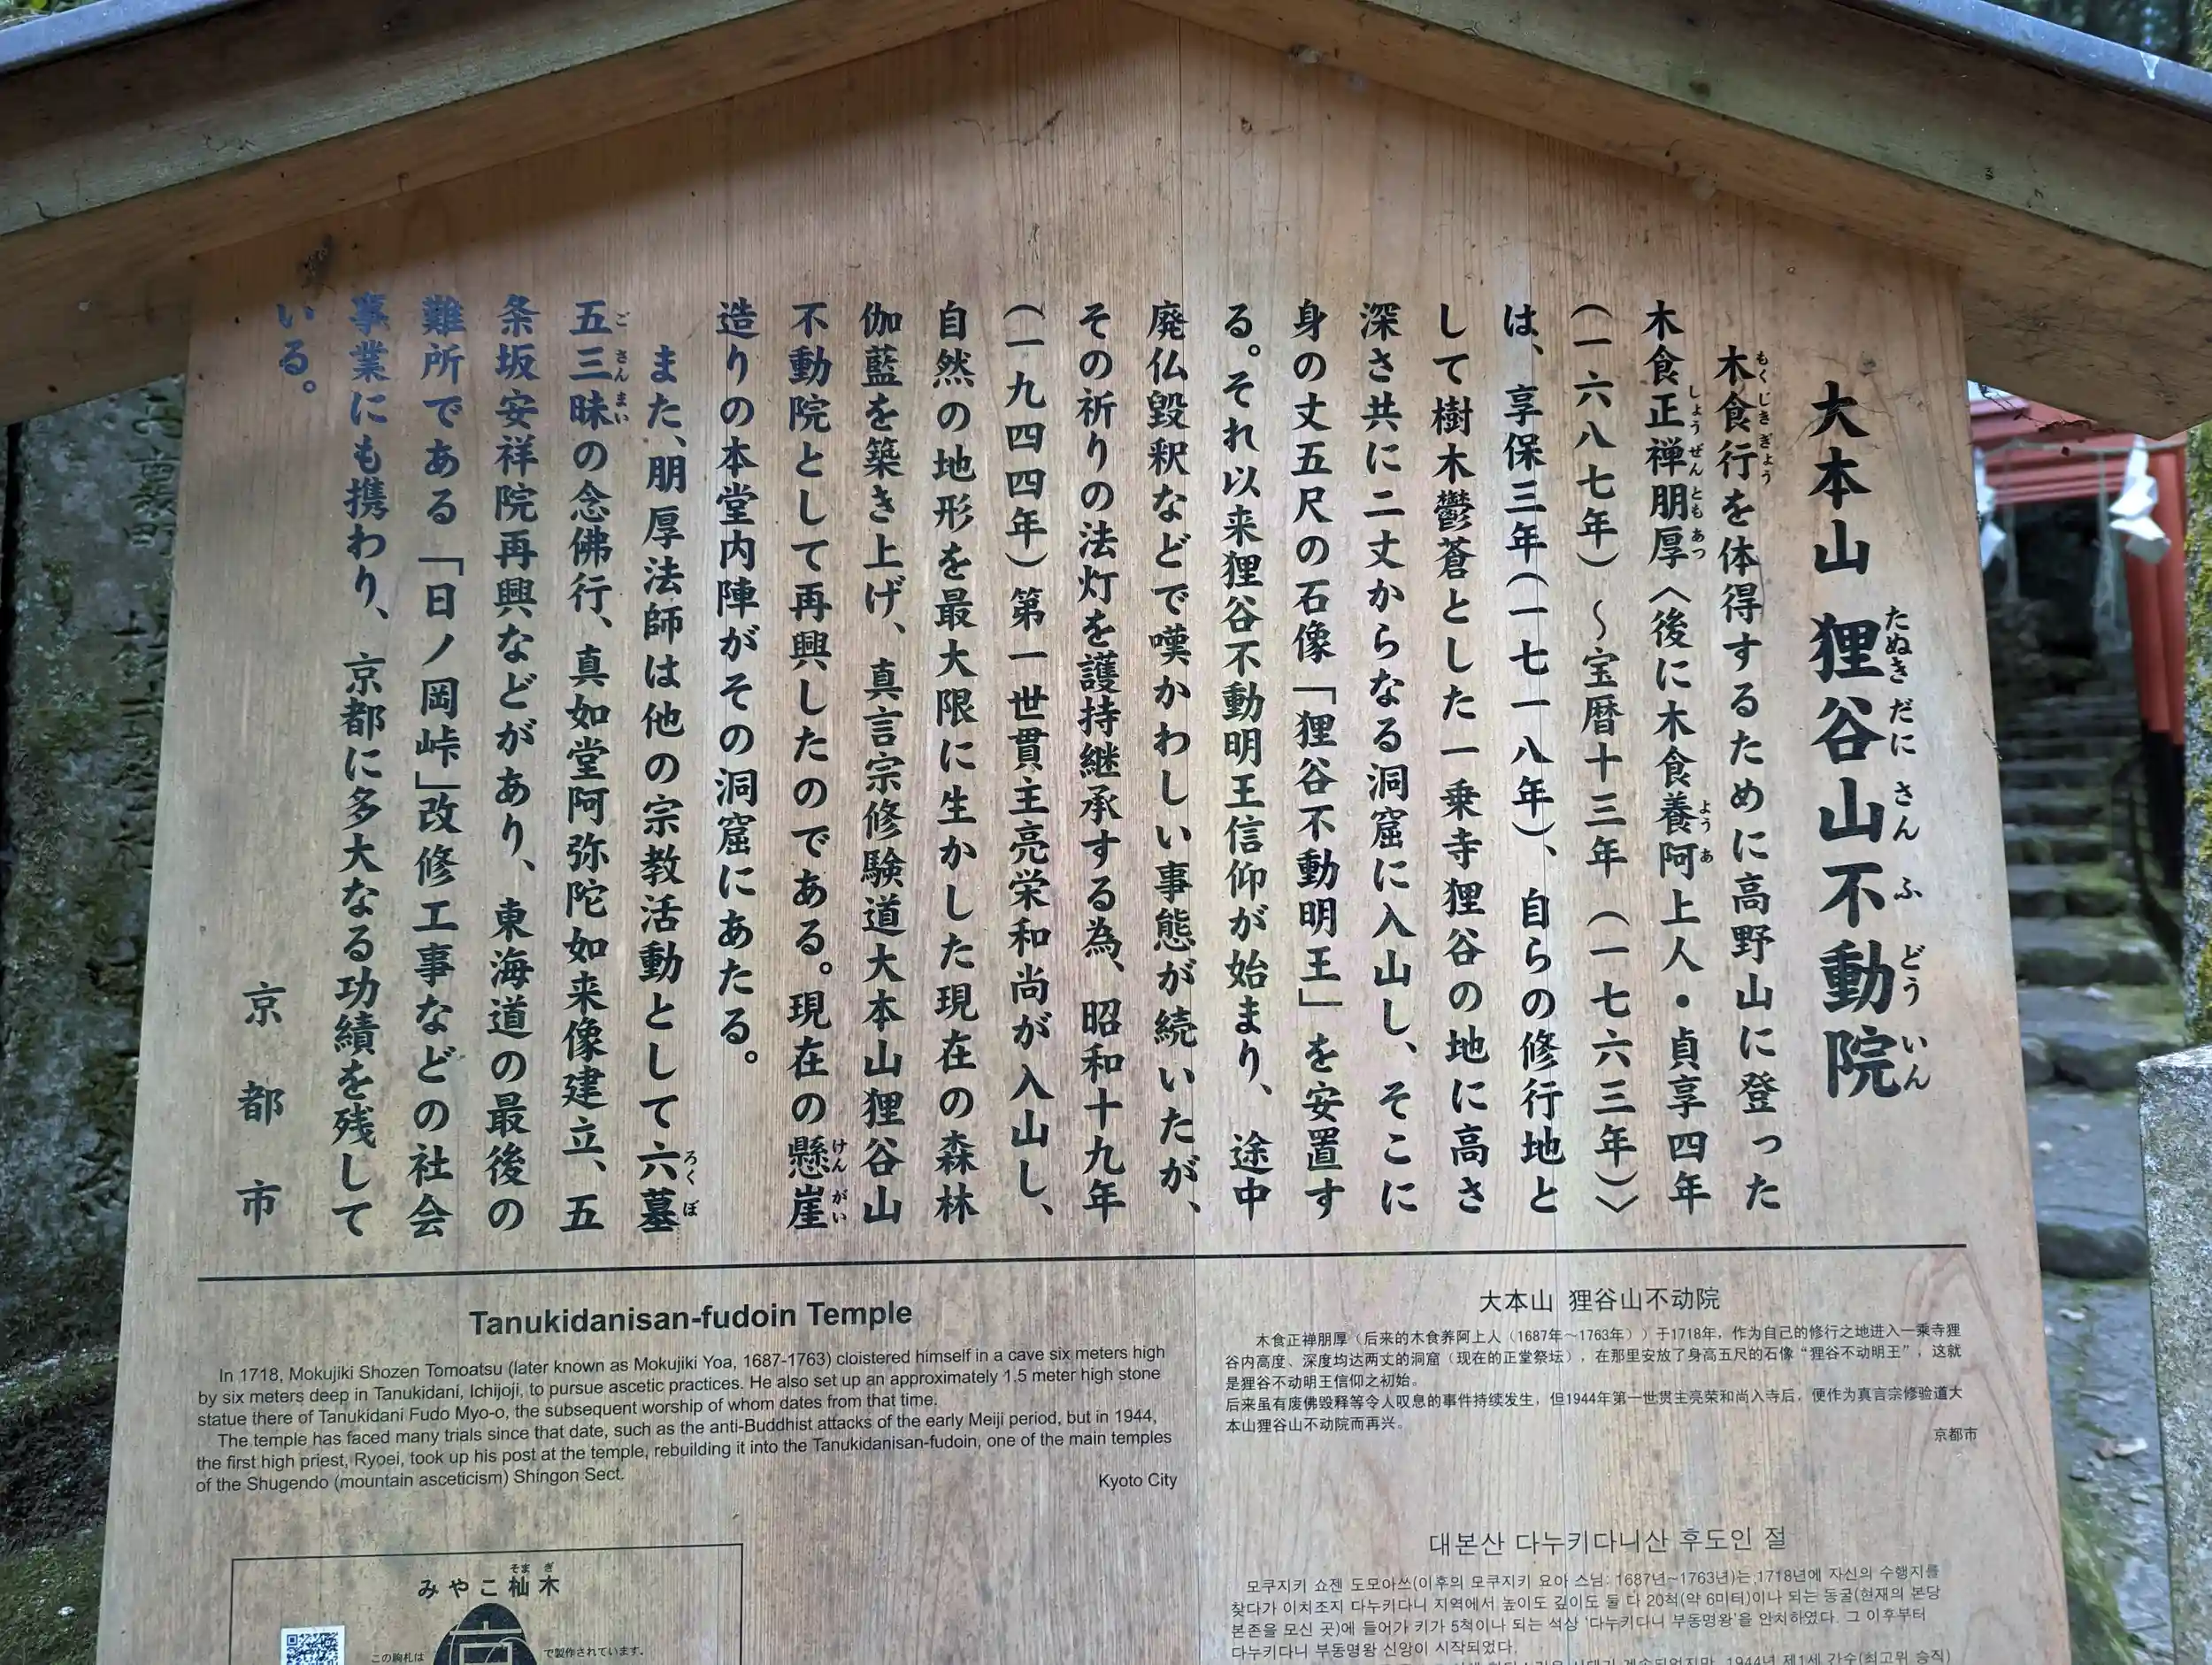 大本山 狸谷山不動院
たぬきだにさんふどういん
木食行を体得するために高野山に登った
もくじきぎょう
木食正禅朋厚〈後に木食養阿上人・貞享四年
しょうぜんともあつ
ようあ
(一六八七年)～宝暦十三年(一七六三年)〉
は、享保三年(一七一八年)、自らの修行地と
して樹木鬱蒼とした一乗寺狸谷の地に高さ
深さ共に二丈からなる洞窟に入山し、そこに
身の丈五尺の石像「狸谷不動明王」を安置す
る。それ以来狸谷不動明王信仰が始まり、途中
廃仏毀釈などで嘆かわしい事態が続いたが、
その祈りの法灯を護持継承する為、昭和十九年
(一九四四年)第一世貫主亮栄和尚が入山し、
自然の地形を最大限に生かした現在の森林
伽藍を築き上げ、真言宗修験道大本山狸谷山
不動院として再興したのである。現在の懸崖
けんがい
造りの本堂内陣がその洞窟にあたる。
また、朋厚法師は他の宗教活動として六墓
ろくぼ
五三昧の念佛行、真如堂阿弥陀如来像建立、五
ごさんまい
条坂安祥院再興などがあり、東海道の最後の
難所である「日ノ岡峠」改修工事などの社会
事業にも携わり、京都に多大なる功績を残して
いる。
京都市
Tanukidanisan-fudoin Temple
In 1718, Mokujiki Shozen Tomoatsu (later known as Mokujiki Yoa, 1687-1763) cloistered himself in a cave six meters high
by six meters deep in Tanukidani, Ichijoji, to pursue ascetic practices. He also set up an approximately 1.5 meter high stone
statue there of Tanukidani Fudo Myo-o, the subsequent worship of whom dates from that time.
The temple has faced many trials since that date, such as the anti-Buddhist attacks of the early Meiji period, but in 1944,
the first high priest, Ryoei, took up his post at the temple, rebuilding it into the Tanukidanisan-fudoin, one of the main temples
of the Shugendo (mountain asceticism) Shingon Sect.
Kyoto City
大本山 狸谷山不动院
木食正禅朋厚（后来的木食养阿上人（1687年～1763年））于1718年，作为自己的修行之地进入一乘寺狸
谷内高度、深度均达两丈的洞窟（现在的正堂祭坛），在那里安放了身高五尺的石像“狸谷不动明王”，这就
是狸谷不动明王信仰之初始。
后来虽有废佛毁释等令人叹息的事件持续发生，但1944年第一世贯主亮荣和尚入寺后，便作为真言宗修验道大
本山狸谷山不动院而再兴。
京都市
대본산 다누키다니산 후도인 절
모쿠지키 쇼젠 도모아쓰(이후의 모쿠지키 요아 스님: 1687년~1763년)는 1718년에 자신의 수행지를
찾다가 이치조지 다누키다니 지역에서 높이도 깊이도 둘 다 20척(약 6미터)이나 되는 동굴(현재의 본당
본존을 모신 곳)에 들어가 키가 5척이나 되는 석상 '다누키다니 부동명왕'을 안치하였다. 그 이후부터
다누키다니 부동명왕 신앙이 시작되었다.
1944년 제1세 간수(최고위 승직)
みやこ杣木
そまぎ
この駒札は
で製作されています。